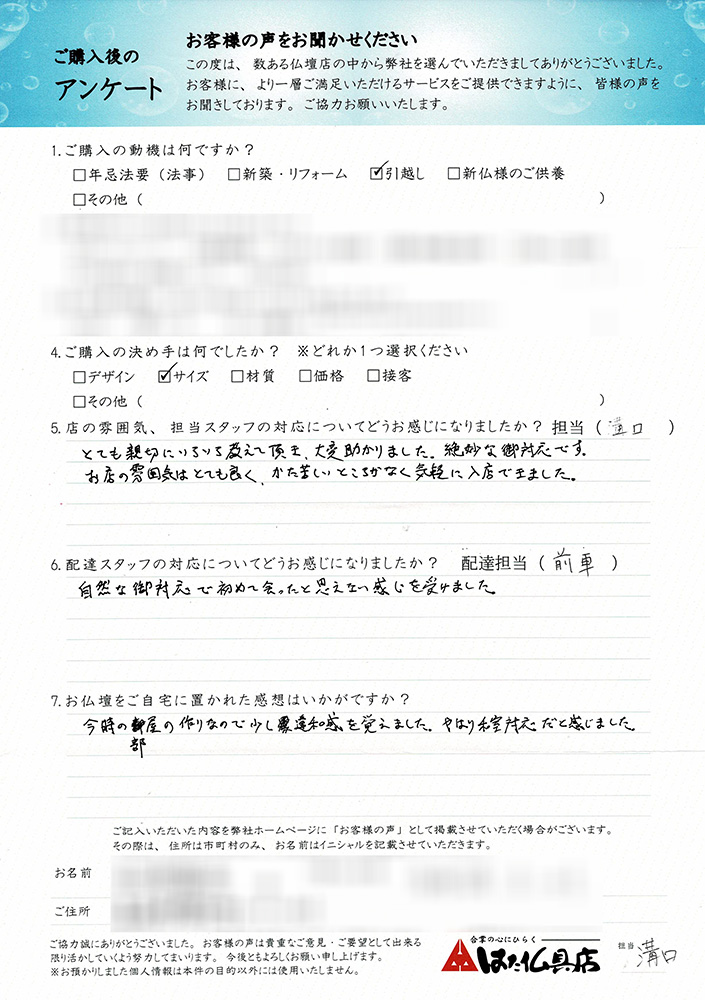 お客様の声をお聞かせください
ご購入後の
アンケート
この度は、数ある仏壇店の中から弊社を選んでいただきましてありがとうございました。
お客様に、より一層ご満足いただけるサービスをご提供できますように、皆様の声を
お聞きしております。ご協力お願いいたします。
1.ご購入の動機は何ですか?
□年忌法要(法事) □新築・リフォーム ☑引越し □新仏様のご供養
□その他( )
4.ご購入の決め手は何でしたか? ※どれか1つ選択ください
□デザイン ☑サイズ □材質 □価格 □接客
□その他( )
5.店の雰囲気、担当スタッフの対応についてどうお感じになりましたか?担当(溝口)
とても親切にいろいろ教えて頂き、大変助かりました。絶妙な御対応です。
お店の雰囲気はとても良く、かた苦しいところがなく気軽に入店できました。
6.配達スタッフの対応についてどうお感じになりましたか? 配達担当(前車)
自然な御対応で初めて会ったと思えない感じを受けました。
7.お仏壇をご自宅に置かれた感想はいかがですか?
今時の部屋の作りなので少し違和感を覚えました。やはり和室対応だと感じました。
部
ご記入いただいた内容を弊社ホームページに「お客様の声」として掲載させていただく場合がございます。
その際は、住所は市町村のみ、お名前はイニシャルを記載させていただきます。
お名前
ご住所
ご協力誠にありがとうございました。お客様の声は貴重なご意見・ご要望として出来る
限り活かしていくよう努力してまいります。今後ともよろしくお願い申し上げます。
※お預かりしました個人情報は本件の目的以外には使用いたしません。
合掌の心にひらく
はた仏具店
担当 溝口